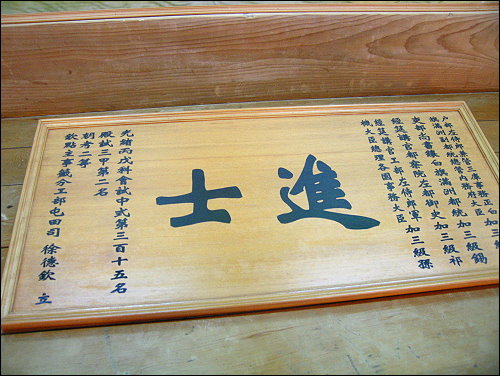 戶部左侍郎管三庫事務正
旗滿洲副都統總管內務府大臣加三級
吏部尚書鑲白旗滿洲都統加三級錫
經筵講官都察院左都御史加三級祁
經筵講官工部左侍郎軍加三級孫
機大臣總理各國事務大臣
進士
光緒丙戌科會試中式第三百十五名
殿試三甲第二名
朝考二等
欽點主事籤分工部屯田司 徐德欽 立